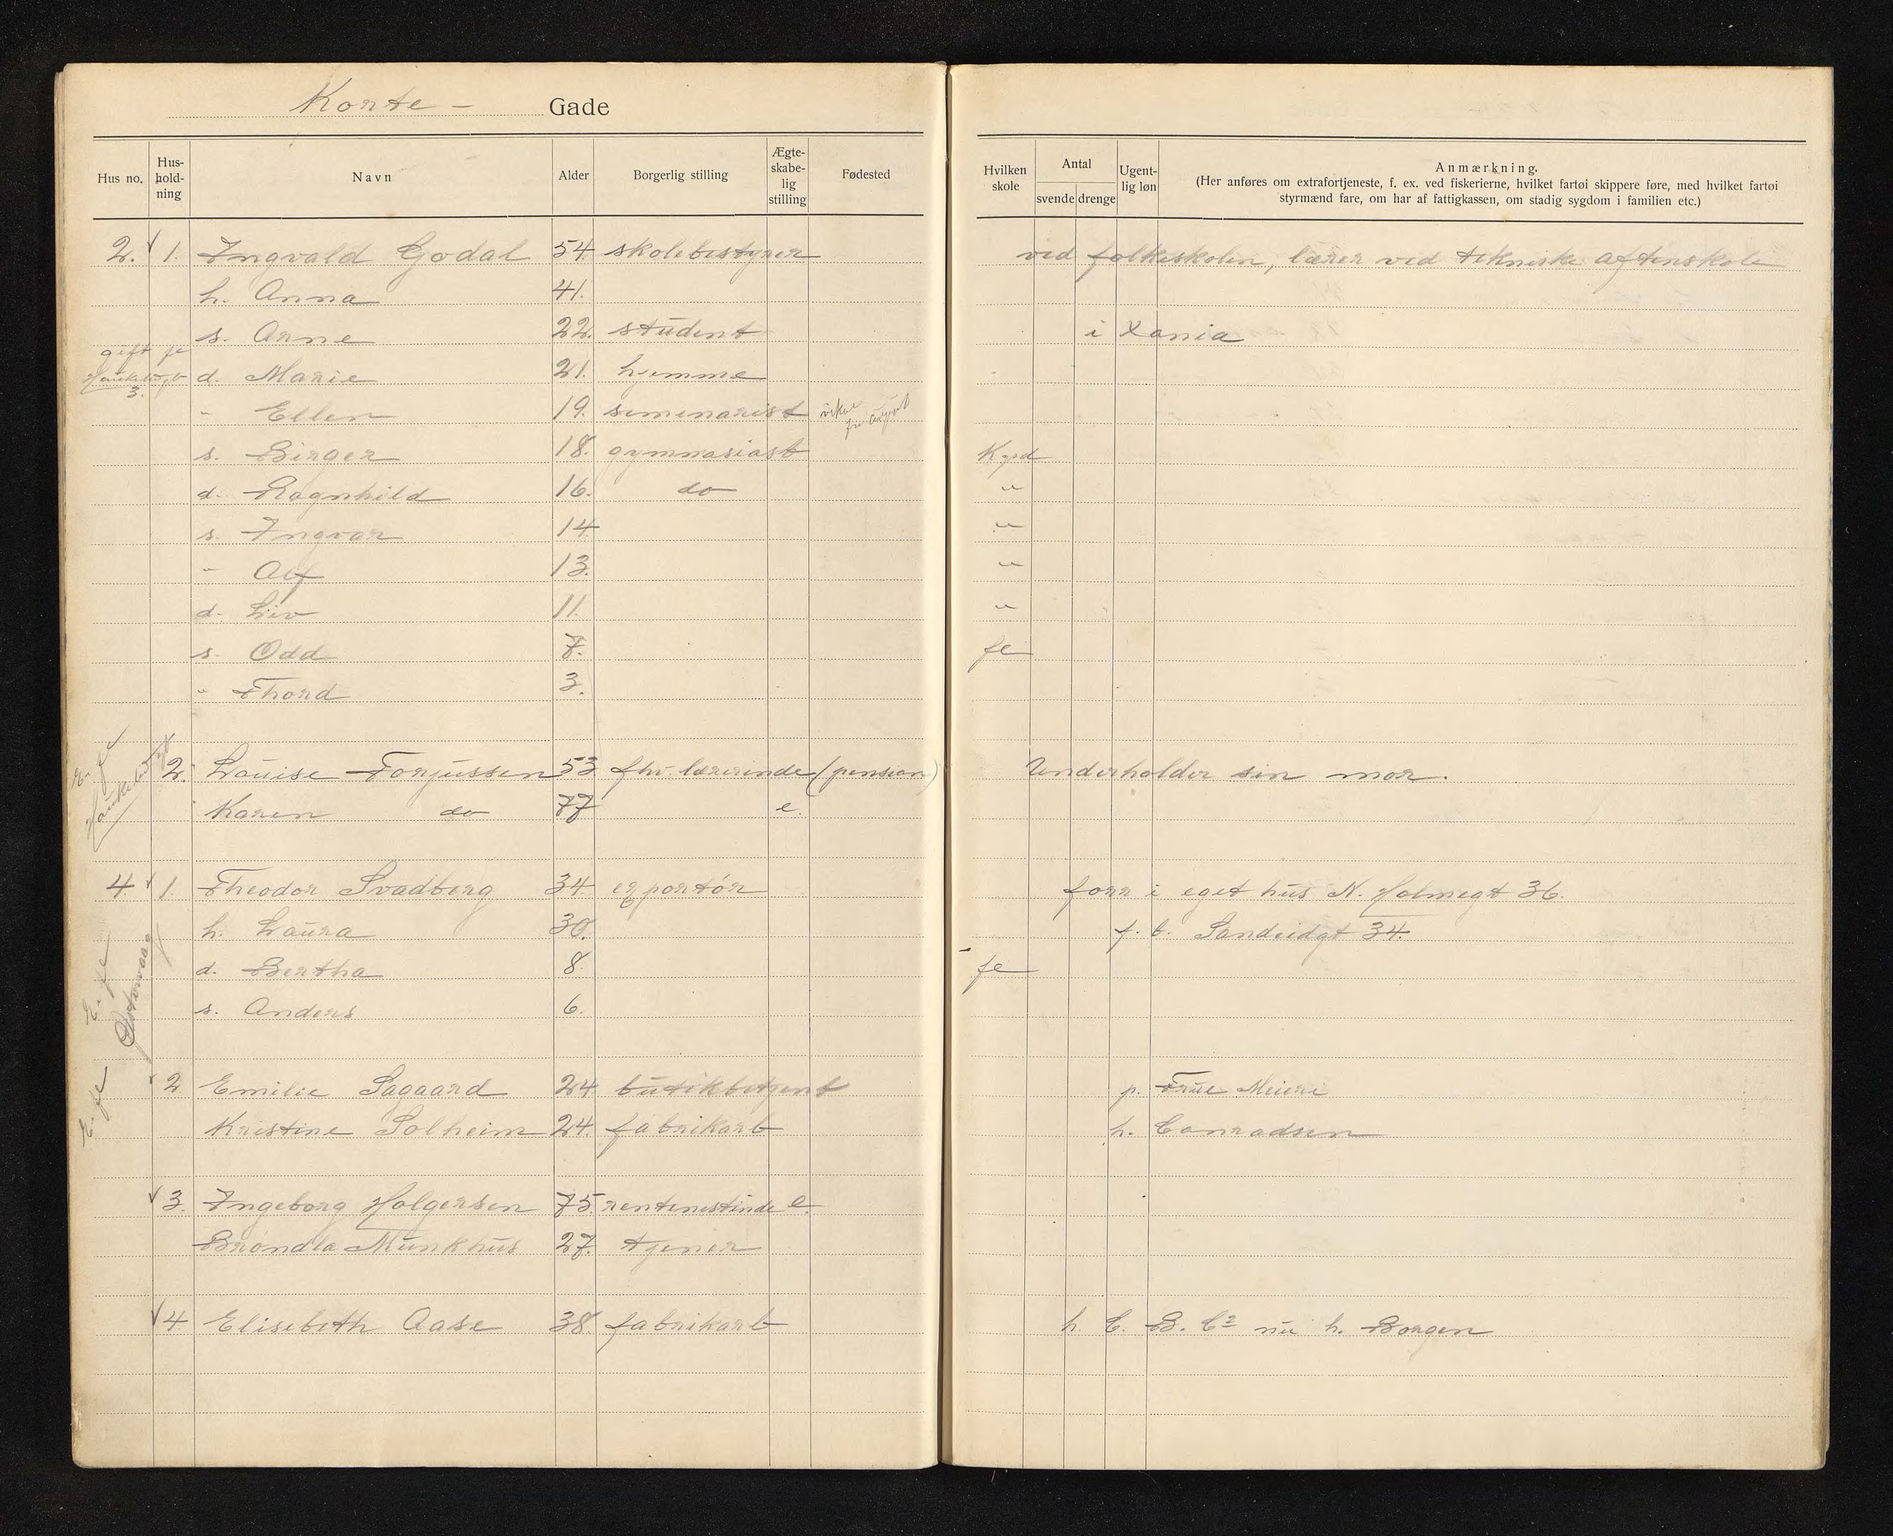 Korte - Gade
Hus no. Hus-hold-ning Navn Alder Borgerlig stilling Ægte-skabe-lig stilling Fødested Hvilken skole Antal svende drenge Ugent-lig løn Anmærkning.
(Her anføres om extrafortjeneste, f. ex. ved fiskerierne, hvilket fartøi skippere føre, med hvilket fartøi
styrmænd fare, om har af fattigkassen, om stadig sygdom i familien etc.)
2. √ 1. Ingvald Godal 54. skolebestyrer ved folkeskolen, lærer ved tekniske aftenskole
h. Anna 41.
s. Arne 22. student i Xania
gift fe
3. d. Marie 21. hjemme
" Ellen 19. seminarist
s. Birger 18. gymnasiast Kgsd
d. Ragnhild 16. do "
s. Ingvar 14 "
" Alf 13. "
d. Liv 11. "
s. Odd 7. fe
" Thord 3.
E. fe
2. Louise Torjussen 53 fhv lærerinde (pension) Underholder sin mor.
Karen do 77 e.
4 √ 1. Theodor Svadberg 34 exportør forr i eget hus N. Holmegt 36.
h. Laura 30. f. b. Sandeidgt 34.
d. Bertha 8. fe
s. Anders 6.
E. fe
√ 2 Emilie Sagaard 24. butikbetjent p. Frue Meieri
E. fe
Kristine Solheim 24. fabrikarb h. Conradsen
√ 3. Ingeborg Holgersen 75. rentenistinde e.
Brondla Munkhus 27. tjener
√ 4 Elisebeth Aase 38. fabrikarb h. C. B. Co nu h. Borgen